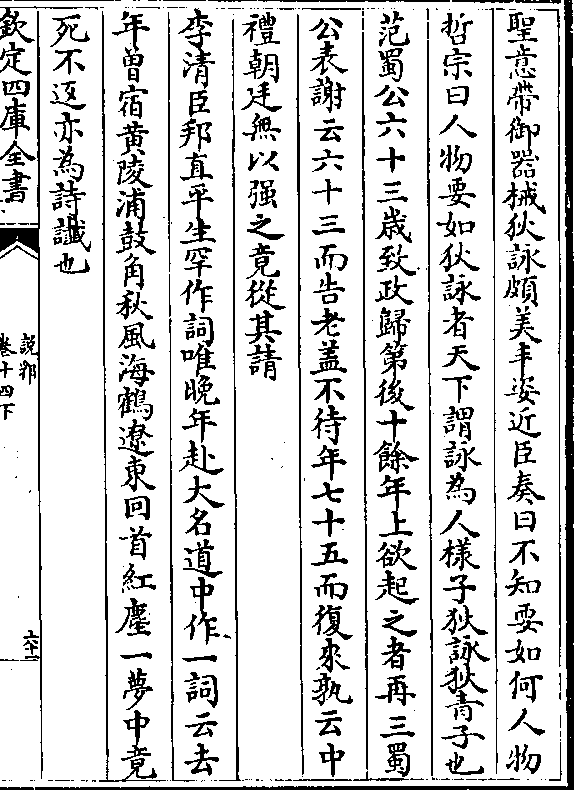 聖意帶御器械狄詠頗美丰姿近臣奏曰不知要如何人物
哲宗曰人物要如狄詠者天下謂詠為人樣子狄詠狄青子也
范蜀公六十三歲致政歸第後十餘年上欲起之者再三蜀
公表謝云六十三而告老盖不待年七十五而復來孰云中
禮朝廷無以强之竟從其請
李清臣邦直平生罕作詞唯晚年赴大名道中作一詞云去
年曽宿黄陵浦鼓角秋風海鶴遼東回首紅塵一夢中竟
死不返亦為詩讖也
欽定四庫全書
說郛
卷十四下
六十一